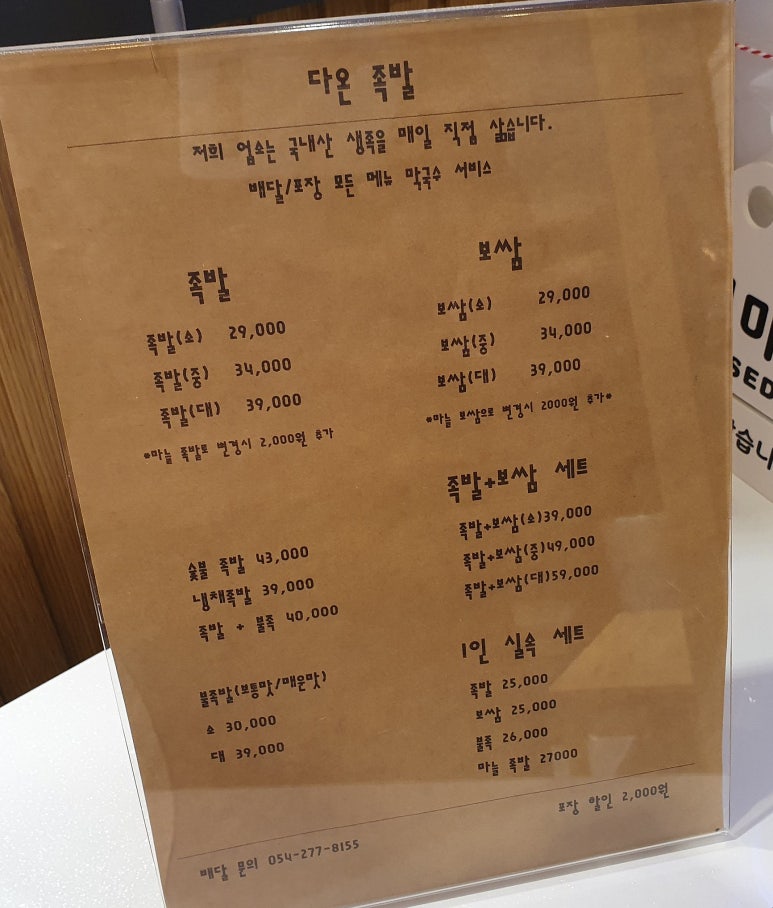 다온 족발
저희 업소는 국내산 생족을 매일 직접 삶습니다.
배달/포장 모든 메뉴 막국수 서비스
족발
족발(소) 29,000
족발(중) 34,000
족발(대) 39,000
*마늘 족발로 변경시 2,000원 추가
숯불 족발 43,000
냉채족발 39,000
족발 + 불족 40,000
불족발(보통맛/매운맛)
소 30,000
대 39,000
보쌈
보쌈(소) 29,000
보쌈(중) 34,000
보쌈(대) 39,000
*마늘 보쌈으로 변경시 2000원 추가*
족발+보쌈 세트
족발+보쌈(소)39,000
족발+보쌈(중)49,000
족발+보쌈(대)59,000
1인 실속 세트
족발 25,000
보쌈 25,000
불족 26,000
마늘 족발 27000
포장 할인 2,000원
배달 문의 054-277-8155